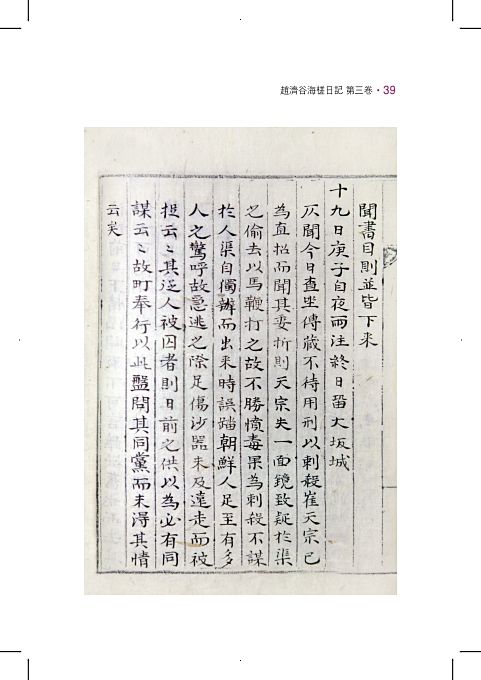 趙濟谷海槎日記 第三卷 • 39
聞書目則並皆下来
十九日庚子自夜雨注終日留大坂城
仄聞今日查坐傳藏不待用刑以刺殺崔天宗已
為直招而聞其委折則天宗失一面鏡致疑於渠
之偷去以馬鞭打之故不勝憤毒果為刺殺不謀
於人渠自獨辦而出来時誤踏朝鮮人足至有多
人之驚呼故急逃之際足傷沙器未及遠走而被
捉云云其逆人被囚者則日前之供以為必有同
謀云云故町奉行以此盤問其同黨而未得其情
云矣